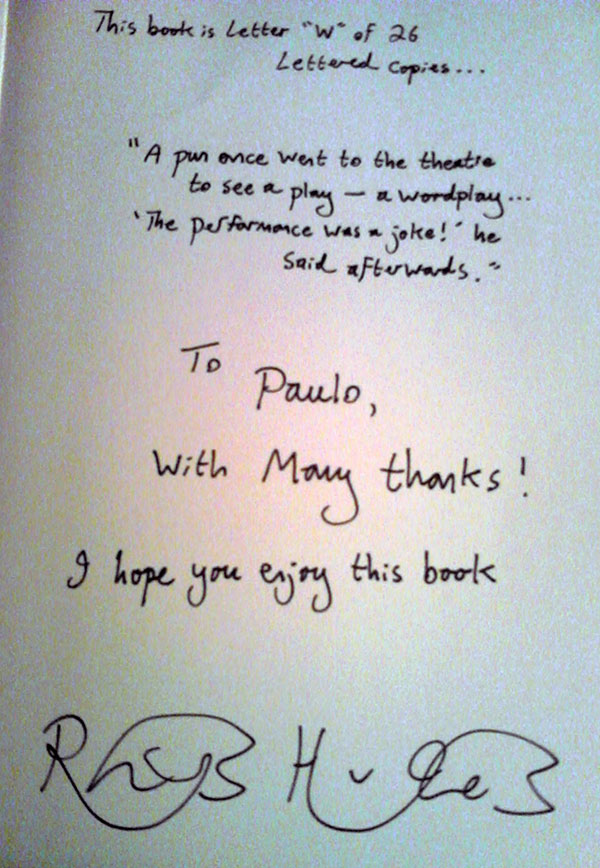 This book is Letter "W" of 26
Lettered Copies...
"A pun once went to the theatre
to see a play — a wordplay...
'The performance was a joke!' he
said afterwards."
To Paulo,
With Many thanks!
I hope you enjoy this book
Rhys Hughes